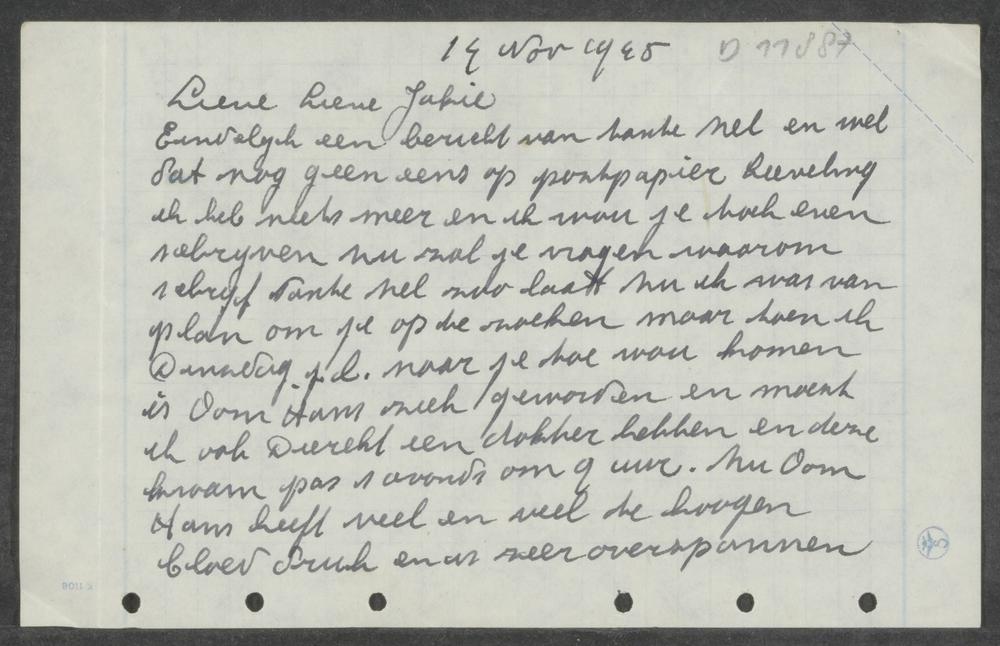 14 Nov 1945 D 11887
Lieve Lieve Jakie
Eindelyk een bericht van tante Nel en wel
dat nog geen eens op postpapier Lieveling
ik heb niets meer en ik wou je toch even
schryven nu zal je vragen waarom
schryf tante Nel zoo laat nu ik was van
plan om je op te zoeken maar toen ik
Dinsdag j.l. naar je toe wou komen
is Oom Hans ziek geworden en moest
ik ook Direkt een dokter hebben en deze
kwam pas s avonds om 9 uur. Nu Oom
Hans heeft veel en veel te hoogen
bloed druk en is zeer overspannen